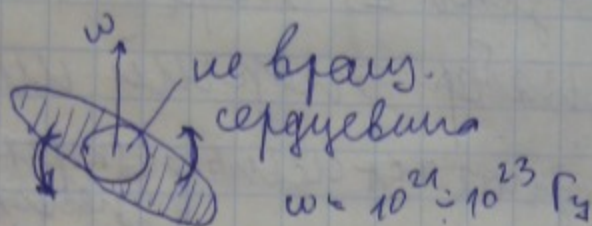 ω
не вращ.
сердцевина
ω ~ 10²¹÷10²³ Гц